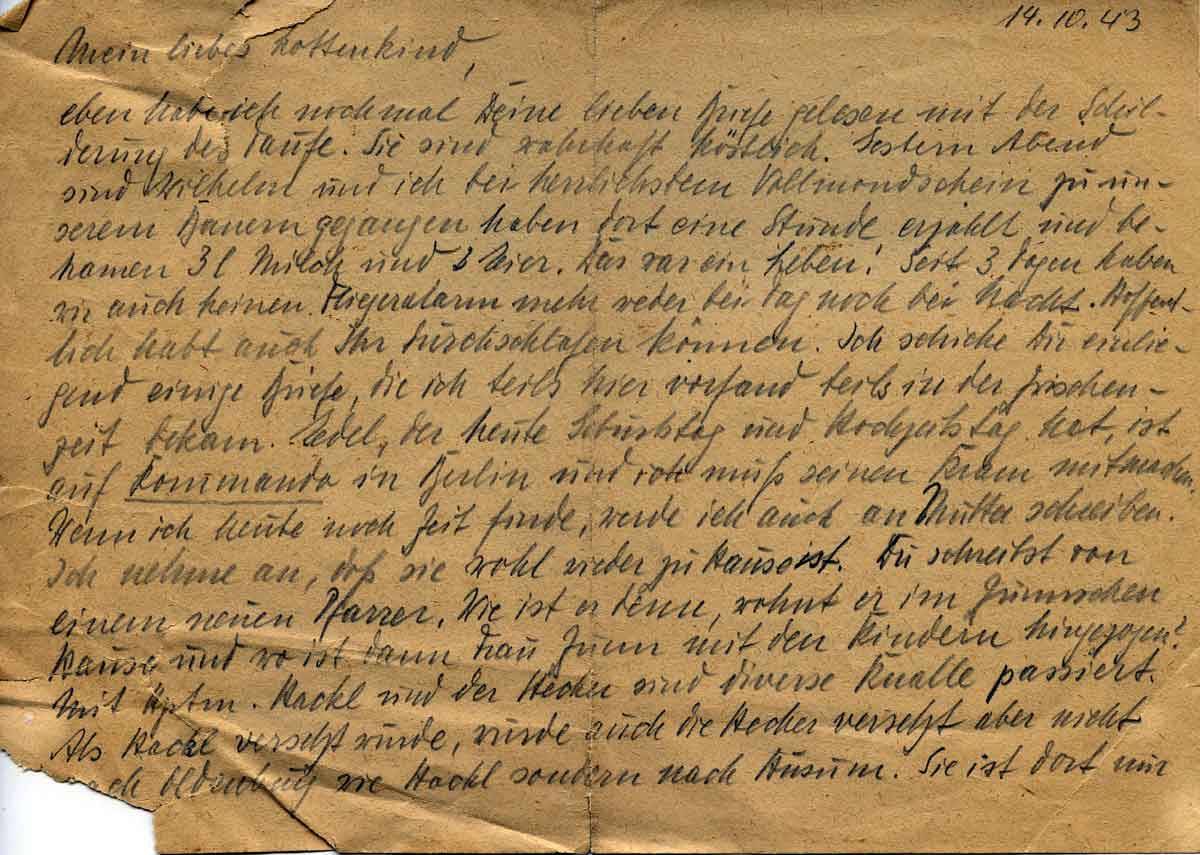 14.10.43
Mein liebes Lottenkind,
eben habe ich nochmal Deine lieben Briefe gelesen mit der Schil-
derung der Taufe. Sie sind wahrhaft köstlich. Gestern Abend
sind Wilhelm und ich bei herrlichstem Vollmondschein zu un-
serem Bauern gegangen haben dort eine Stunde erzählt und be-
kamen 3 l Milch und Eier. Das war ein Leben! Seit 3 Tagen haben
wir auch keinen Fliegeralarm mehr weder bei Tag noch bei Nacht. Hoffent-
lich habt auch Ihr durchschlafen können. Ich schicke Dir einlie-
gend einige Briefe, die ich teils hier vorfand teils in der Zwischen-
zeit bekam. Edel, der heute Geburtstag und Hochzeitstag hat, ist
auf Kommando in Berlin und ich muß seinen Kram mitmachen.
Wenn ich heute noch Zeit finde, werde ich auch an Mutter schreiben.
Ich nehme an, daß sie wohl wieder zu Hause ist. Du schreibst von
einem neuen Pfarrer. Wie ist er denn, wohnt er im Zunnschen
Hause und wo ist dann Frau Zunn mit den Kindern hingezogen?
Mit Hackl und der Hecher sind diverse Knalle passiert.
Als Hackl versetzt wurde, wurde auch die Hecher versetzt aber nicht
nach Oldenburg wie Hackl sondern nach Husum. Sie ist dort nur